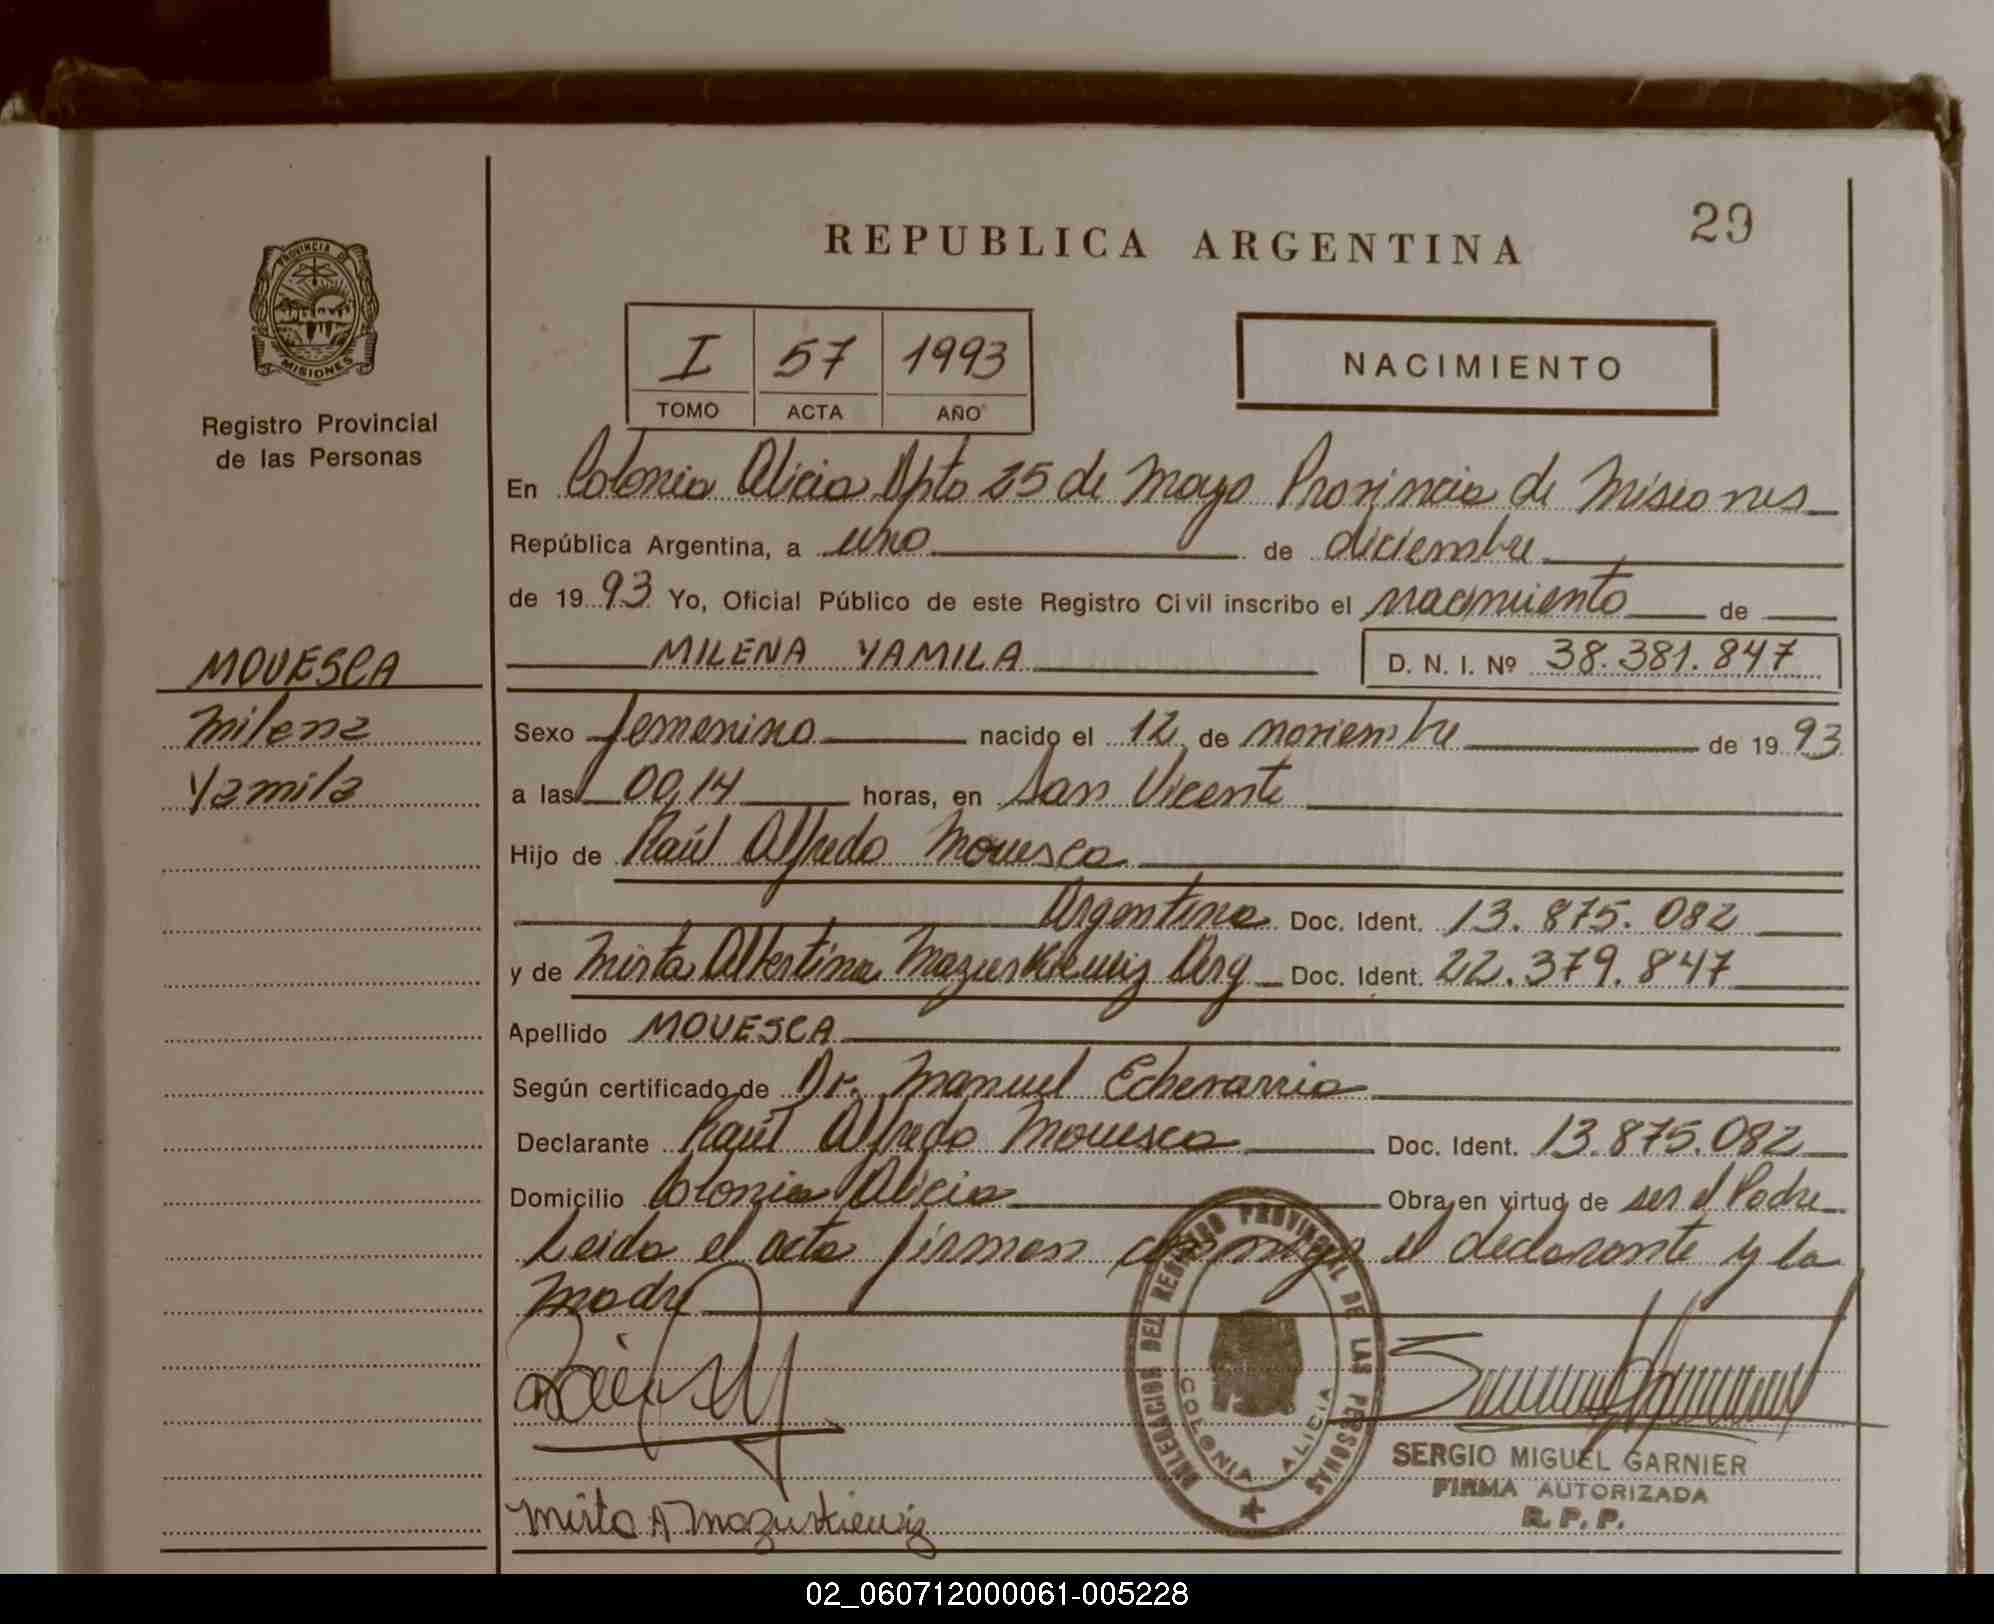 REPUBLICA ARGENTINA
29
PROVINCIA DE
MISIONES
Registro Provincial
de las Personas
I 57 1993
TOMO ACTA AÑO
NACIMIENTO
En Colonia Alicia Dpto 25 de Mayo Provincia de Misiones
República Argentina, a uno de diciembre
de 19 93 Yo, Oficial Público de este Registro Civil inscribo el nacimiento de
MILENA YAMILA D. N. I. Nº 38.381.847
MOUESCA
Milena
Yamila
Sexo femenino nacido el 12 de noviembre de 19 93
a las 00,14 horas, en San Vicente
Hijo de Raúl Alfredo Mouesca
Argentino Doc. Ident. 13.875.082
y de Mirta Albertina Mazurkiewiz Arg Doc. Ident. 22.379.847
Apellido MOUESCA
Según certificado de Dr. Manuel Echevarria
Declarante Raúl Alfredo Mouesca Doc. Ident. 13.875.082
Domicilio Colonia Alicia Obra en virtud de ser el Padre
Leida el acta firman conmigo el declarante y la
madre
DELEGACION DEL REGISTRO PROVINCIAL DE LAS PERSONAS
COLONIA ALICIA
SERGIO MIGUEL GARNIER
FIRMA AUTORIZADA
R. P. P.
Mirta A Mazurkiewiz
02_060712000061-005228